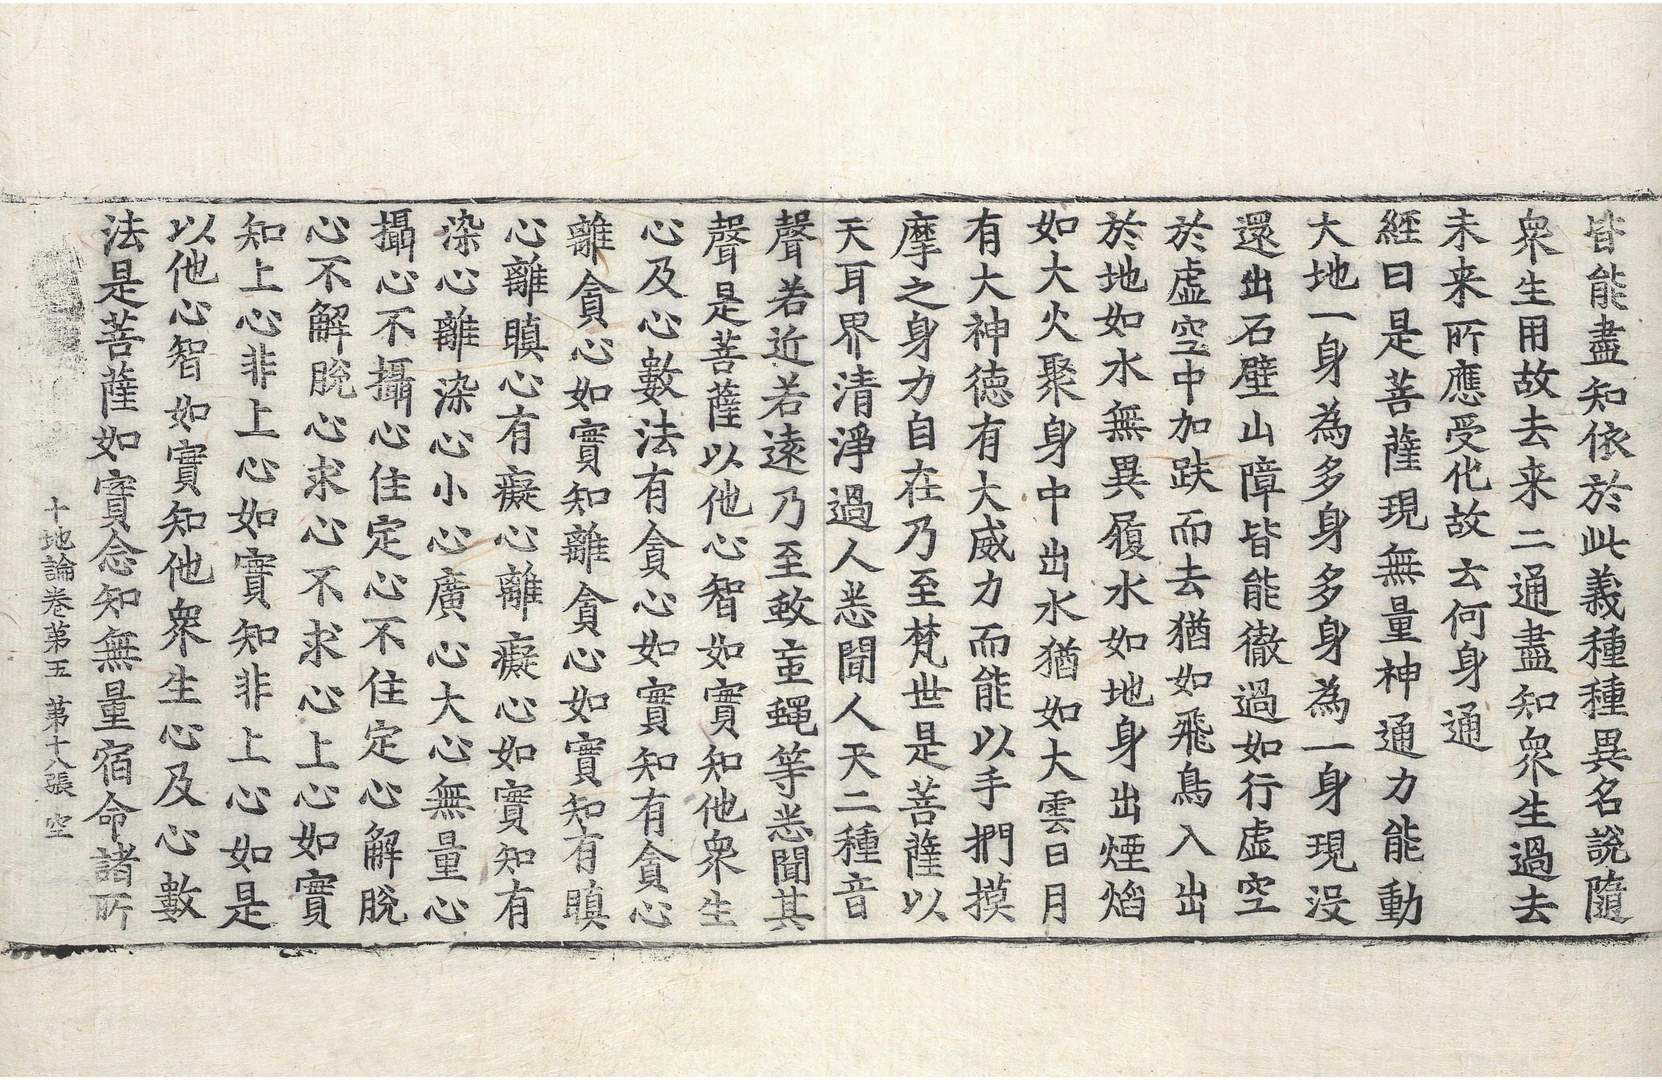 皆能盡知依於此義種種異名說隨
衆生用故去来二通盡知衆生過去
未来所應受化故云何身通
經曰是菩薩現無量神通力能動
大地一身為多身多身為一身現没
還出石壁山障皆能徹過如行虚空
於虚空中加趺而去猶如飛鳥入出
於地如水無異履水如地身出煙焰
如大火聚身中出水猶如大雲日月
有大神德有大威力而能以手捫摸
摩之身力自在乃至梵世是菩薩以
天耳界清淨過人悉聞人天二種音
聲若近若遠乃至蚊䖟蠅等悉聞其
聲是菩薩以他心智如實知他衆生
心及心數法有貪心如實知有貪心
離貪心如實知離貪心如實知有瞋
心離瞋心有癡心離癡心如實知有
染心離染心小心廣心大心無量心
攝心不攝心住定心不住定心解脫
心不解脫心求心不求心上心如實
知上心非上心如實知非上心如是
以他心智如實知他衆生心及心數
法是菩薩如實念知無量宿命諸所
十地論卷第五 第十八張 空